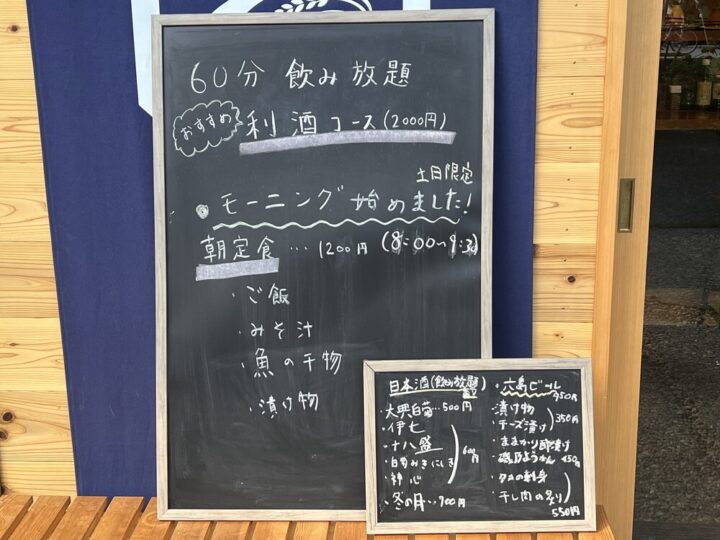 60分 飲み放題
おすすめ
利酒コース(2000円)
土日限定
・モーニング始めました!
朝定食…1200円 (8:00~9:30)
・ご飯
・みそ汁
・魚の干物
・漬け物
日本酒(飲み放題)
・大典白菊…500円
・伊七
・十八盛
・白菊みきにしき
・神心
600円
・冬の月…700円
・六島ビール
950円
・漬け物
・チーズ漬け
350円
・ままかり酢漬け
・磯乃ようかん 450円
・タコの刺身
・干し肉の炙り
550円